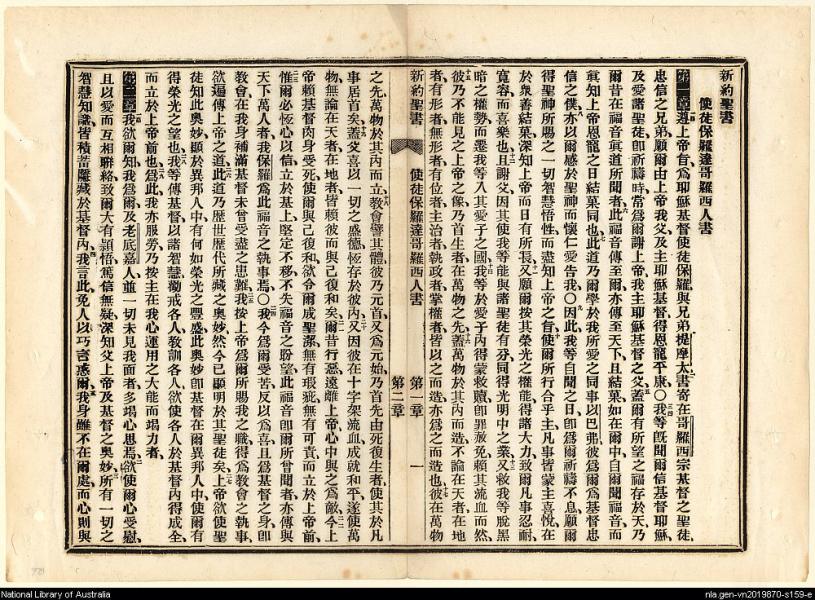 新約聖書
使徒保羅達哥羅西人書
第一章遵上帝旨、爲耶穌基督使徒保羅、與兄弟提摩太、書寄在哥羅西宗基督之聖徒、
忠信之兄弟、願爾由上帝我父、及主耶穌基督、得恩寵平康、〇我等旣聞爾信基督耶穌、
及愛諸聖徒、卽祈禱時常爲爾謝上帝我主耶穌基督之父、蓋爾有所望之福存於天、乃
爾昔在福音眞道所聞者、此福音傳至爾、亦傳至天下、且結果、如在爾中、自爾聞福音、而
眞知上帝恩寵之日、結果同也、此道乃爾學於我所愛之同事以巴弗、彼爲爾爲基督忠
信之僕、亦以爾感於聖神而懷仁愛告我、〇因此、我等自聞之日、卽爲爾祈禱不息、願爾
得聖神所賜之一切智慧悟性、而盡知上帝之旨、使爾所行合乎主、凡事皆蒙主喜悅、在
於衆善結果、深知上帝而日有所長、又願爾按其榮光之權能、得諸大力、致爾凡事忍耐、
寬容而喜樂也、且謝父、因其使我等能與諸聖徒有分、同得光明中之業、又救我等脫黑
暗之權勢、而遷我等入其愛子之國、我等於愛子內、得蒙救贖、卽罪赦免、賴其流血而然、
彼乃不能見之上帝之像、乃首生者、在萬物之先、蓋萬物於其內而造、不論在天者在地
者、有形者無形者、有位者主治者執政者掌權者、皆以之而造、亦爲之而造也、彼在萬物
新約聖書
使徒保羅達哥羅西人書
第一章
第二章
一
之先、萬物於其內而立、教會譬其體、彼乃元首、又爲元始、乃首先由死復生者、使其於凡
事居首矣、蓋父喜以一切之盛德恆存於彼內、又因彼在十字架流血成就和平、遂使萬
物、無論在天者、在地者、皆賴彼而與己復和矣、爾昔行惡、遠離上帝、心中與之爲敵、今上
帝賴基督肉身受死、使爾與己復和、欲令爾成聖潔、無有瑕疵、無有可責、而立於上帝前、
惟爾必恆心以信立於基上、堅定不移、不失福音之盼望、此福音卽爾所曾聞者、亦傳與
天下萬人者、我保羅爲此福音之執事焉、〇我今爲爾受苦、反以爲喜、且爲基督之身、卽
教會、在我身補滿基督未曾受盡之患難、我按上帝爲爾所賜我之職、得爲教會之執事、
欲遍傳上帝之道、此道乃歷世歷代所藏之奧妙、然今已顯明於其聖徒矣、上帝欲使聖
徒知此奧妙、顯於異邦人中、有何如榮光之豐盛、此奧妙卽基督在爾異邦人中、使爾有
得榮光之望也、我等傳基督、以諸智慧勸戒各人、教訓各人、欲使各人於基督內得成全、
而立於上帝前也、爲此我亦服勞、乃按主在我心運用之大能而竭力者、
第二章我欲爾知我爲爾及老底嘉人、並一切未見我面者、多竭心思焉、欲使爾心受慰、
且以愛而互相聯絡、致爾大有穎悟、篤信無疑、深知父上帝及基督之奧妙、所有一切之
智慧知識、皆積蓄隱藏於基督內、我言此、免人以巧言惑爾、我身雖不在爾處、而心則與
National Library of Australia
nla.gen-vn2019870-s159-e